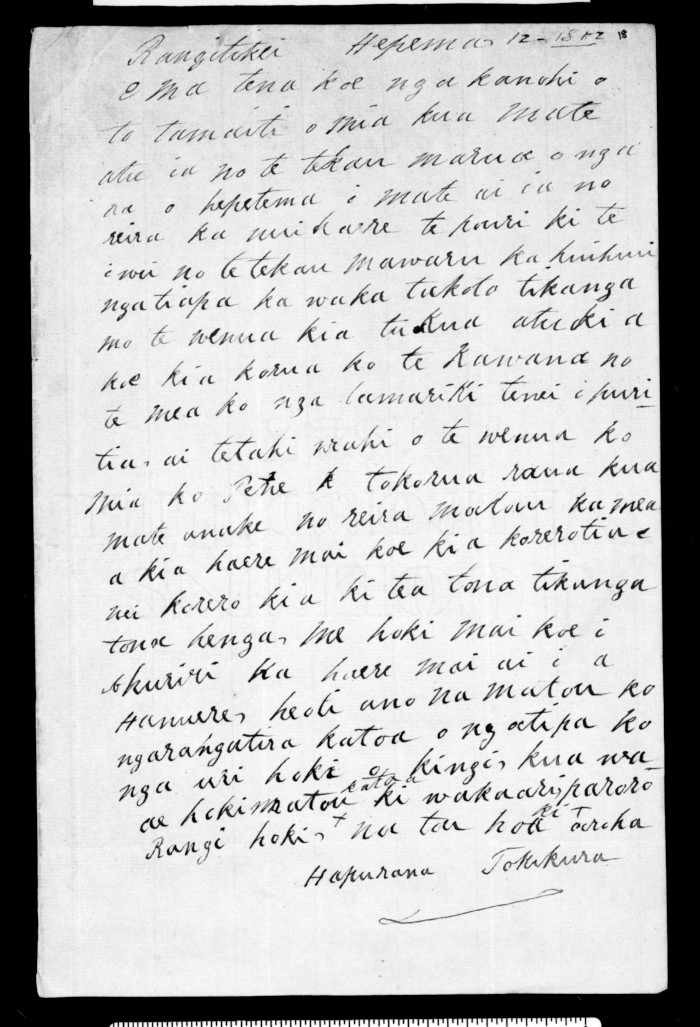 Rangitikei Hepema 12 - 1852
E Ma tena koe nga kanohi o
to tamaiti o Mia kua Mate
atu ia no te tekau marua o nga
ra o hepetema i mate ai ia no
reira ka nui haere te pouri ki te
iwi no te tekau mawaru ka huihui
ngatiapa ka waka tukolo tikanga
mo te wenua kia tukua atu ki a
koe kia korua ko te Kawana no
te mea ko nga tamariki tenei i puri-
tia, ai tetahi wahi o te wenua ko
Mia ko Pehe tokorua raua kua
mate anake no reira Matou ka mea
a kia haere mai koe kia korerotia e
nei korero kia ki tea tona tikanga
tona henga, me hoki mai koe i
Akuriri ka haere mai ai i a
Hanuere, heoti ano Na Matou ko
ngarangatira katoa o ngatipa ko
nga uri hoki o kingi, kua wa-
ae hoki matou katoa ki wakaari, paroro
Rangi hoki, na tou hoa ki aroha
Hapurana Tohikura